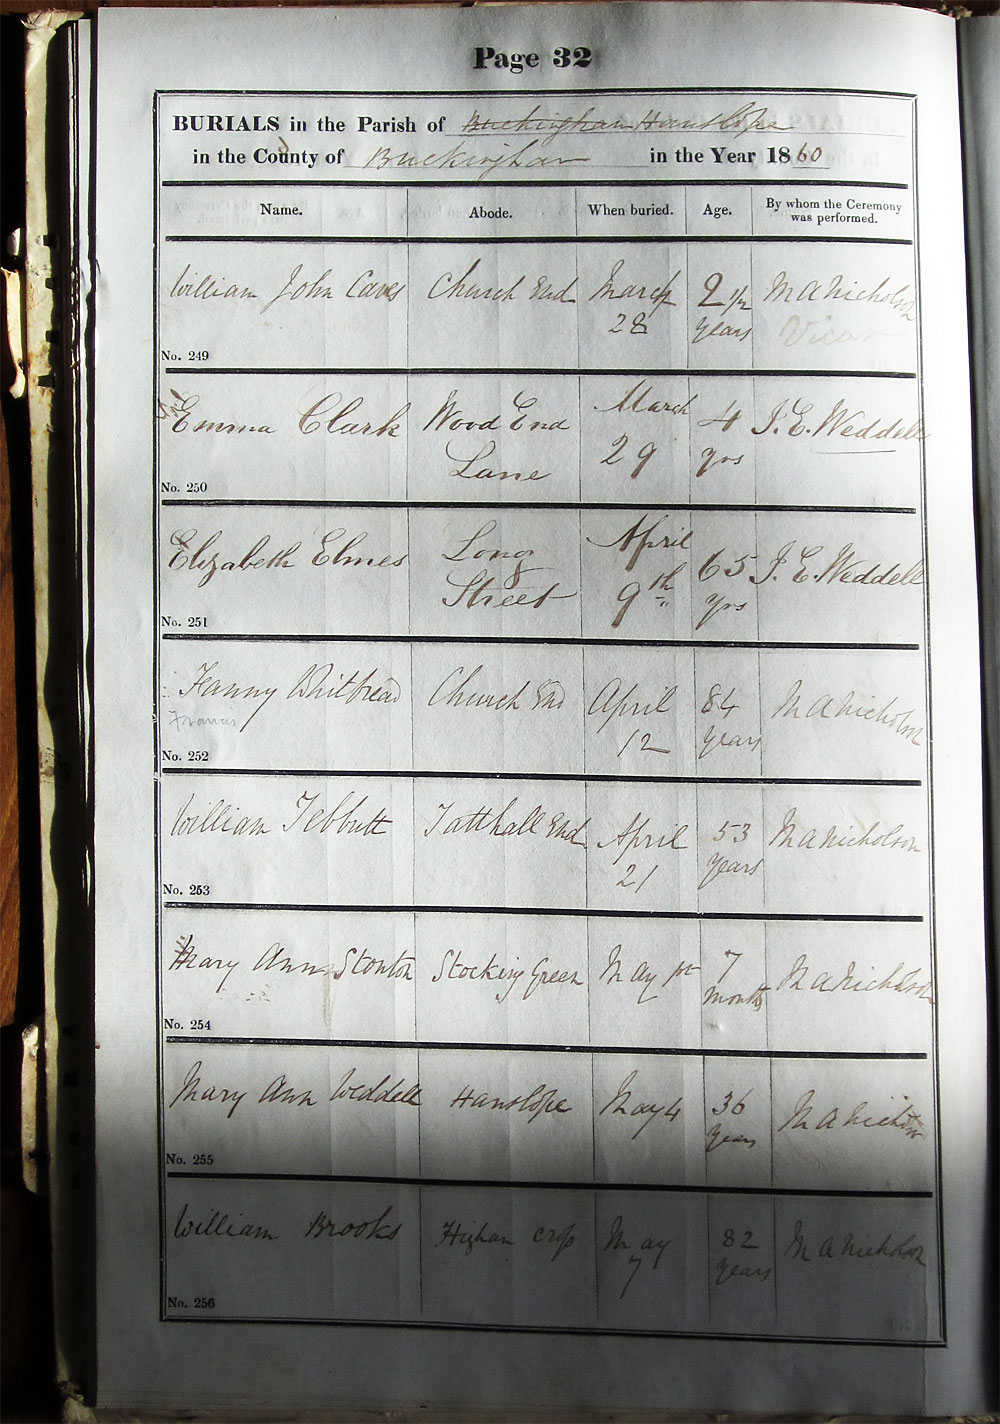 Page 32
BURIALS in the Parish of Buckingham Hanslope
in the County of Buckingham in the Year 1860
Name. Abode. When buried. Age. By whom the Ceremony was performed.
William John Caves Church End March 2 1/2 M A Nicholson
28 years Vicar
No. 249
Emma Clark Wood End March 4 J. E. Weddell
Lane 29 yrs
No. 250
Elizabeth Elmes Long April 65 J. E. Weddell
Street 9th yrs
No. 251
Fanny Whitbread Church End April 84 M A Nicholson
Francis 12 years
No. 252
William Tebbutt Tatthall End April 53 M A Nicholson
21 years
No. 253
Mary Ann Stonton Stocking Green May 1st 7 M A Nicholson
months
No. 254
Mary Ann Weddell Hanslope May 4 36 M A Nicholson
years
No. 255
William Brooks Higham crofs May 82 M A Nicholson
7 years
No. 256